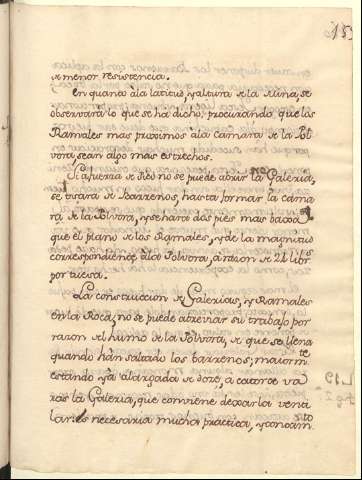 153
de menor resistencia.
En quanto à la latitud, y altura de la Mina, se
observarà lo que se ha dicho, procurando que los
Ramales mas proximos à la camara de la Pol
vora, sean algo mas estrechos.
Si a fuerza de Pico no se puede abrir la Galeria,
se usarà de Barrenos, hasta formar la cama
ra de la Polvora, y se harà dos pies mas baxa
que el plano de los Ramales, y de la magnitud
correspondiente à la Polvora, à razon de 21 libs
por tuesa.
La construccion de Galerias, y Ramales
en la Roca, no se puede abreviar su trabajo por
razon del humo de la Polvora, de que se llena
quando han saltado los barrenos; maiormte
estando yà alargada de doze, a catorce va
ras la Galeria, que conviene dexarla venti
lar: es necesaria mucha practica, y conocimto
L. 19
fig 2